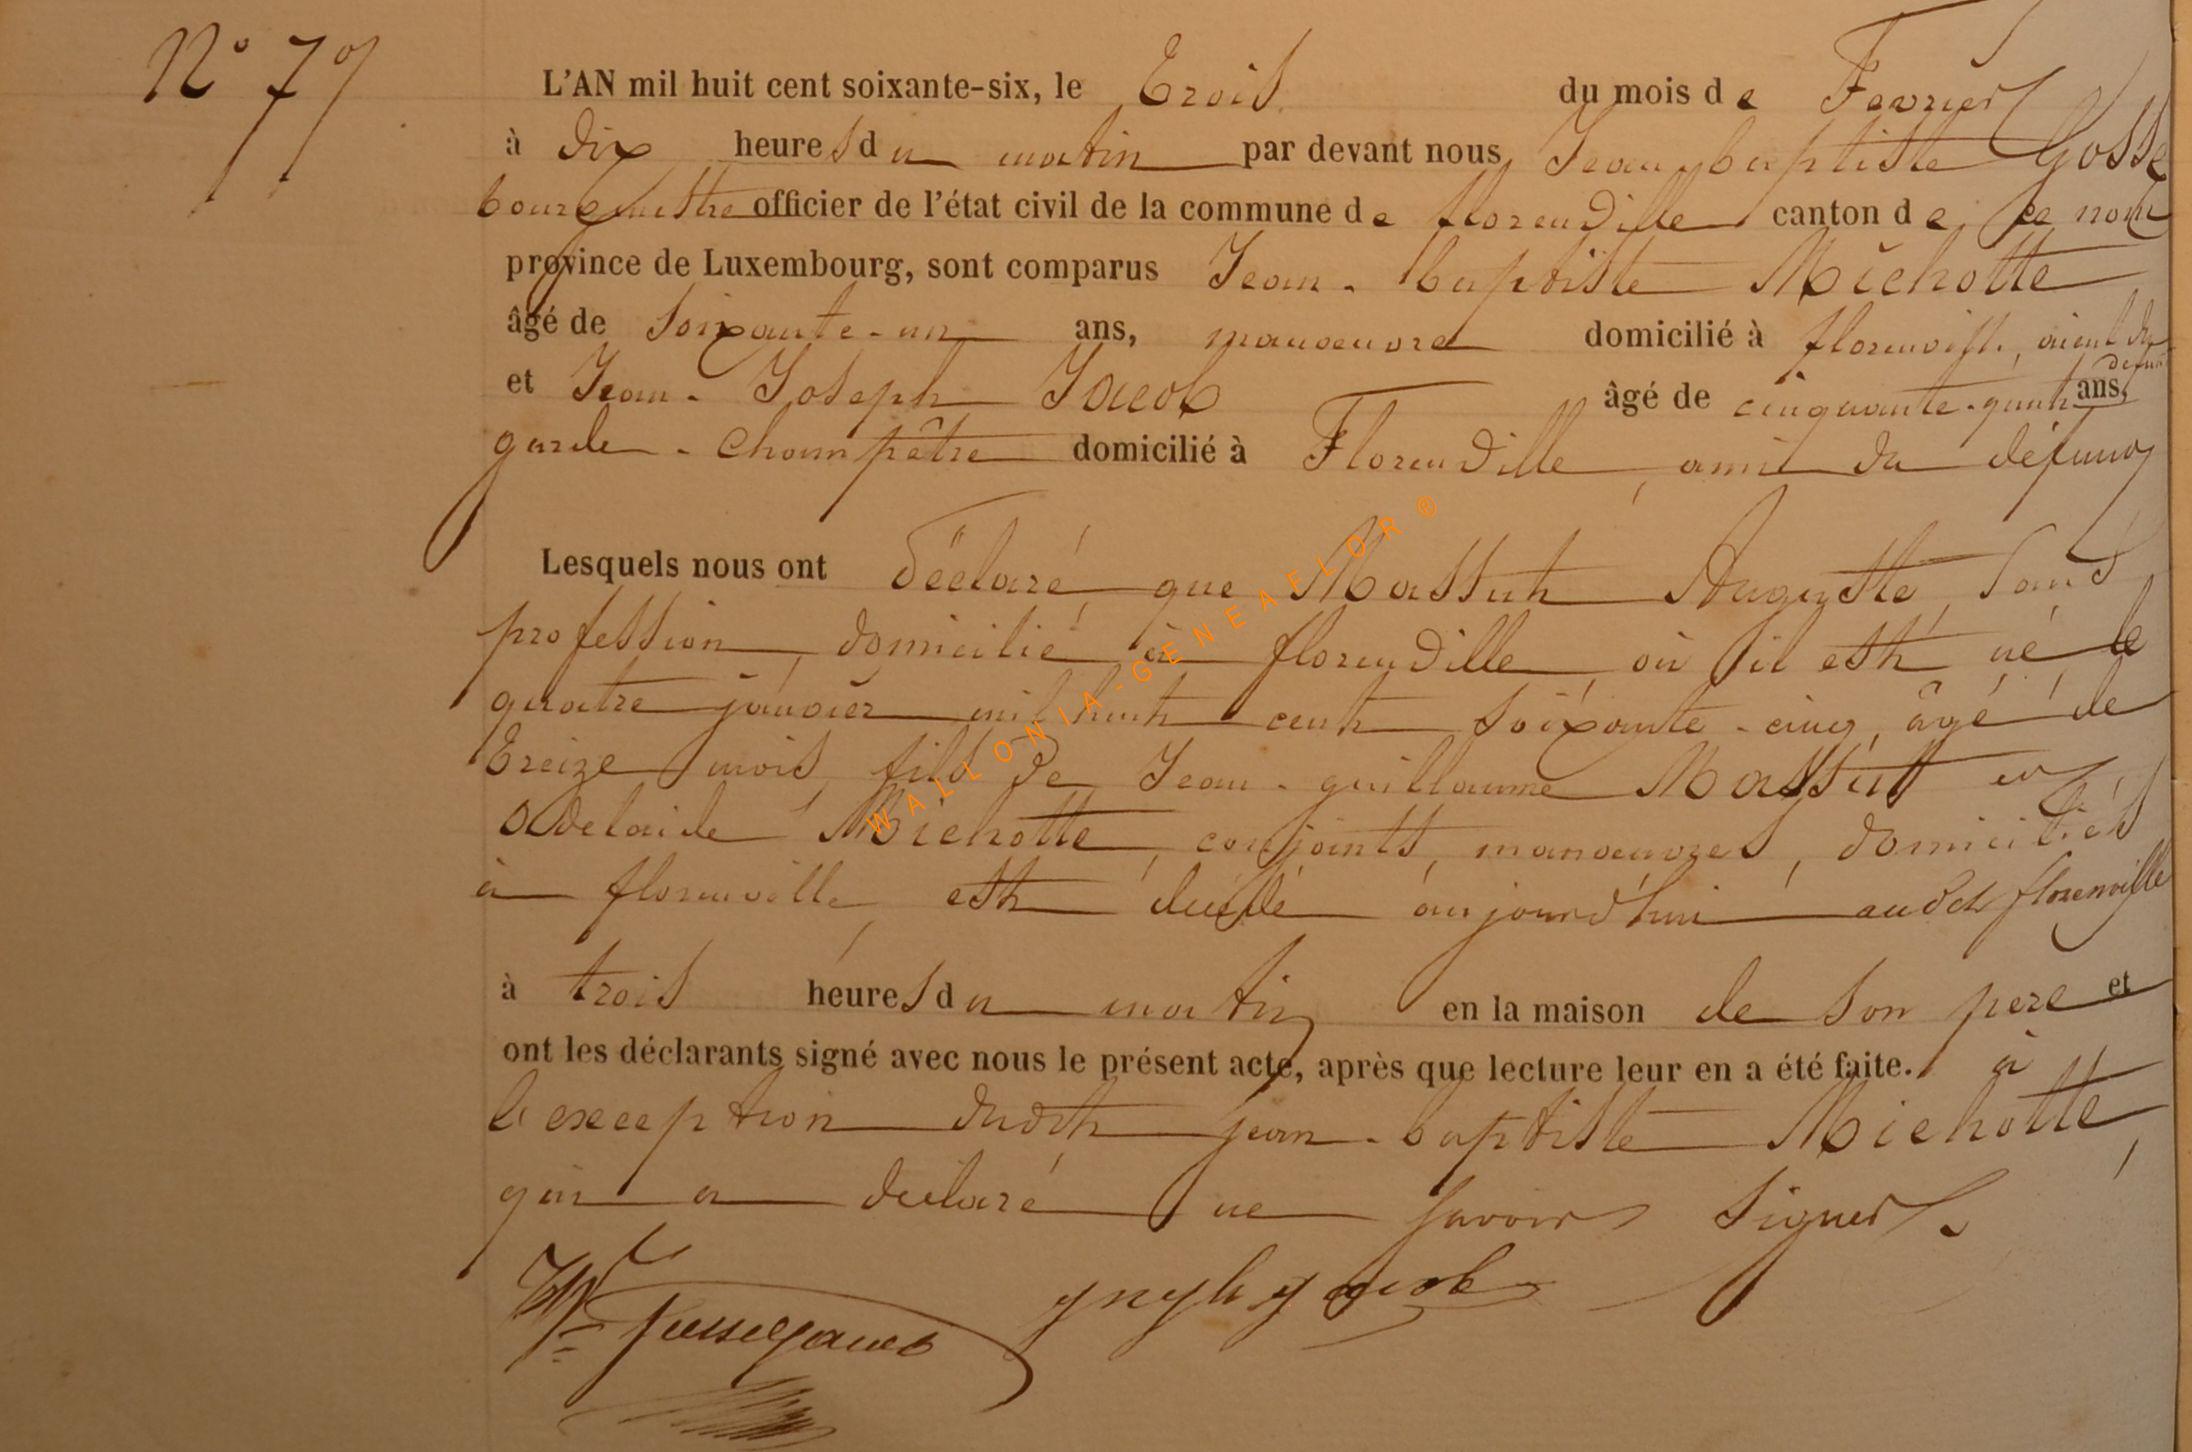 N° 7
L'AN mil huit cent soixante-six, le trois du mois de Fevrier
à dix heures du matin par devant nous Jean baptiste Gosse
bourgmestre officier de l'état civil de la commune de florenville canton de ce nom
province de Luxembourg, sont comparus Jean-baptiste Michotte
âgé de soixante-un ans, manoeuvre domicilié à florenville, aieul du
défunt
et Jean-Joseph Jacob âgé de cinquante-quatre ans,
garde-champêtre domicilié à Florenville, ami du défunt
Lesquels nous ont déclaré que Massut Auguste, sans
profession, domicilié à florenville où il est né le
quatre janvier mil huit cent soixante-cinq, âgé de
treize mois, fils de Jean-guillaume Massut et
adelaide Michotte, conjoints, manoeuvres, domiciliés
à florenville, est décédé aujourd'hui audit florenville
à trois heures du matin en la maison de son père et
ont les déclarants signé avec nous le présent acte, après que lecture leur en a été faite. à
l'exception dudit jean-baptiste Michotte,
qui a déclaré ne savoir signer.
WALLONIA-GENEAELOR ®